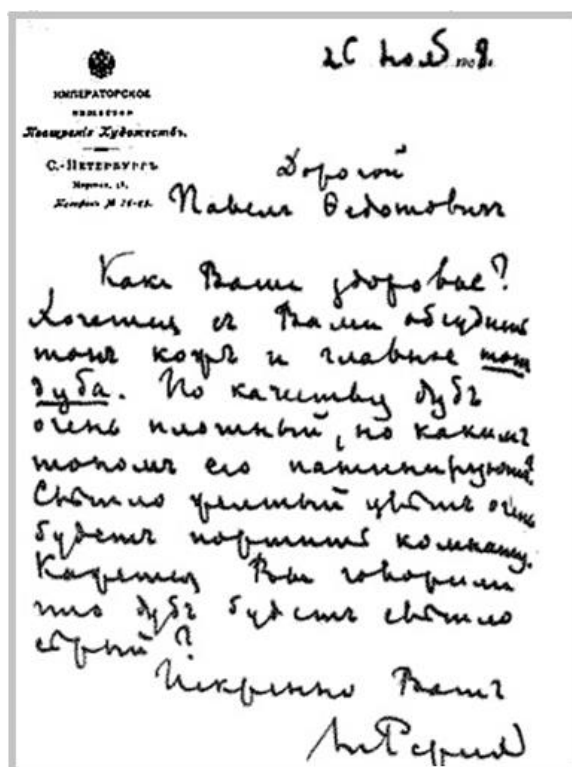 ИМПЕРАТОРСКОЕ
ОБЩЕСТВО
Поощренія Художествъ.
С.-ПЕТЕРБУРГЪ
Морская, 38.
Телефонъ №
26 нояб 1908.
Дорогой
Павелъ Ѳедотовичъ
Какъ Ваше здоровье?
Хочется съ Вами обсудить
тонъ и главное тонъ
дуба. По качеству дубъ
очень плотный, но какимъ
тономъ его патинируютъ?
Свѣтло желтый цвѣтъ очень
будетъ портить комнату.
Кажется Вы говорили
что дубъ будетъ свѣтло
сѣрый?
Искренно Вашъ